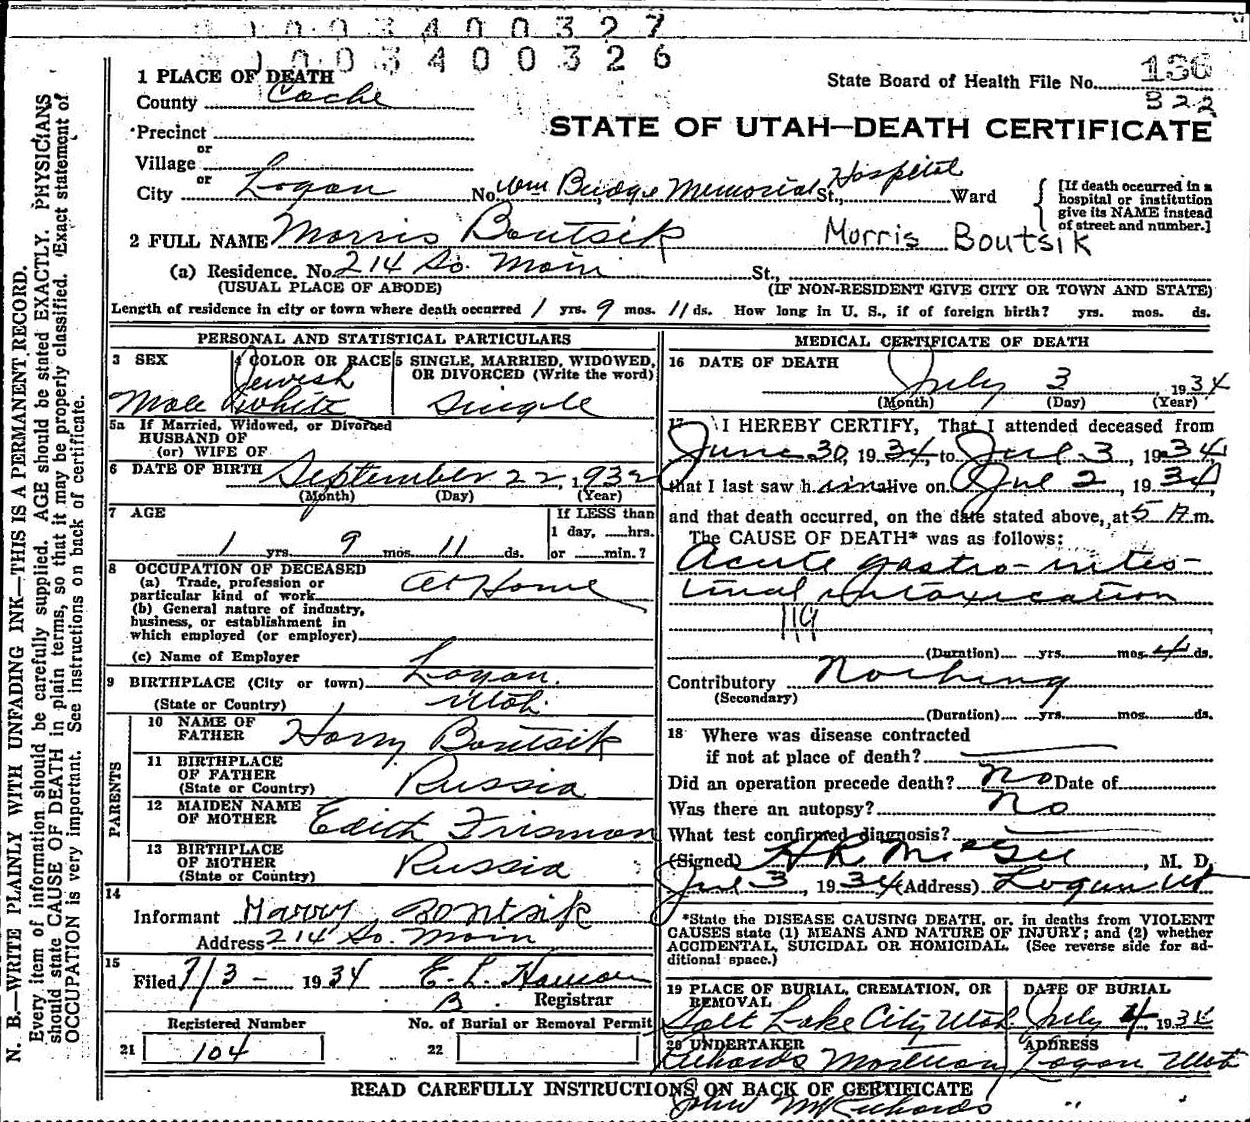 1003400327
1003400326
1 PLACE OF DEATH
County Cache
State Board of Health File No. 136
322
Precinct
or
Village
or
City Logan No. Wm Budge Memorial Hospital St., Ward
STATE OF UTAH—DEATH CERTIFICATE
[If death occurred in a
hospital or institution
give its NAME instead
of street and number.]
2 FULL NAME Morris Boutsik Morris Boutsik
(a) Residence. No. 214 So. Main St.,
(USUAL PLACE OF ABODE) (IF NON-RESIDENT GIVE CITY OR TOWN AND STATE)
Length of residence in city or town where death occurred 1 yrs. 9 mos. 11 ds. How long in U. S., if of foreign birth? yrs. mos. ds.
PERSONAL AND STATISTICAL PARTICULARS
3 SEX
Male
4 COLOR OR RACE
Jewish
White
5 SINGLE, MARRIED, WIDOWED,
OR DIVORCED (Write the word)
Single
5a If Married, Widowed, or Divorced
HUSBAND OF
(or) WIFE OF
6 DATE OF BIRTH September 22, 1932
(Month) (Day) (Year)
7 AGE
1 yrs. 9 mos. 11 ds.
If LESS than
1 day, hrs.
or min.?
8 OCCUPATION OF DECEASED
(a) Trade, profession or
particular kind of work At Home
(b) General nature of industry,
business, or establishment in
which employed (or employer)
(c) Name of Employer
9 BIRTHPLACE (City or town) Logan.
(State or Country) Utah.
PARENTS
10 NAME OF
FATHER Harry Boutsik
11 BIRTHPLACE
OF FATHER
(State or Country) Russia
12 MAIDEN NAME
OF MOTHER Edith Frisman
13 BIRTHPLACE
OF MOTHER
(State or Country) Russia
14
Informant Harry Boutsik
Address 214 So. Main
15
Filed 7/3 - 1934 E. L. Hanson
B. Registrar
Registered Number No. of Burial or Removal Permit
21 104 22
MEDICAL CERTIFICATE OF DEATH
16 DATE OF DEATH
July 3 1934
(Month) (Day) (Year)
17 I HEREBY CERTIFY, That I attended deceased from
June 30, 1934, to Jul 3, 1934,
that I last saw h im alive on Jul 2, 1934,
and that death occurred, on the date stated above, at 5 A.m.
The CAUSE OF DEATH* was as follows:
Acute gastro-intes-
tinal intoxication
119
(Duration) yrs. mos. 4 ds.
Contributory Nothing
(Secondary)
(Duration) yrs. mos. ds.
18 Where was disease contracted
if not at place of death?
Did an operation precede death? no Date of
Was there an autopsy? no
What test confirmed diagnosis?
(Signed) H R McGee, M. D.
Jul 3, 1934 (Address) Logan Ut
*State the DISEASE CAUSING DEATH, or, in deaths from VIOLENT
CAUSES state (1) MEANS AND NATURE OF INJURY; and (2) whether
ACCIDENTAL, SUICIDAL OR HOMICIDAL. (See reverse side for ad-
ditional space.)
19 PLACE OF BURIAL, CREMATION, OR
REMOVAL
Salt Lake City Utah.
DATE OF BURIAL
July 4 1934
20 UNDERTAKER
Richards Mortuary
ADDRESS
Logan Utah
READ CAREFULLY INSTRUCTIONS ON BACK OF CERTIFICATE
John M Richards " "
N. B.—WRITE PLAINLY WITH UNFADING INK—THIS IS A PERMANENT RECORD.
Every item of information should be carefully supplied. AGE should be stated EXACTLY. PHYSICIANS
should state CAUSE OF DEATH in plain terms, so that it may be properly classified. Exact statement of
OCCUPATION is very important. See instructions on back of certificate.